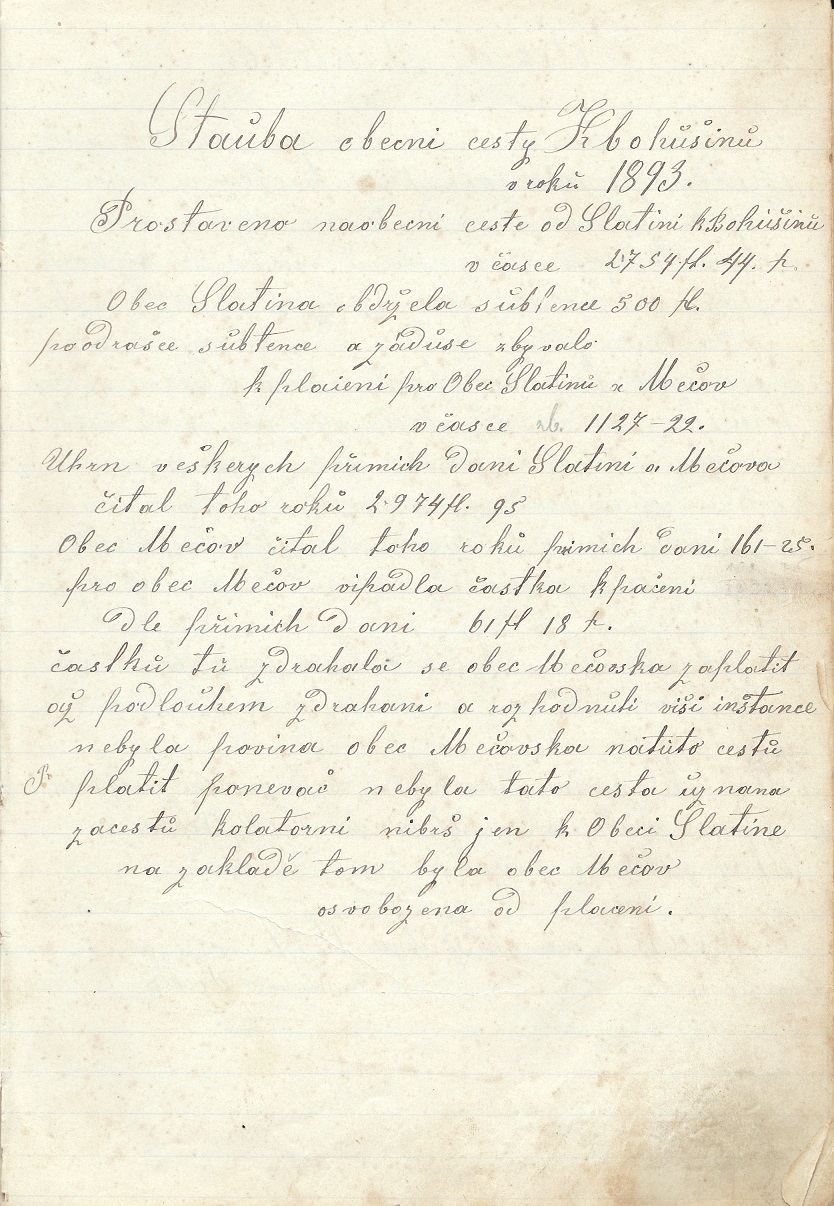 Stauba obecni cesty Kbohušinů
v roků 1893.
Prostaveno naobecni ceste od Slatini k Bohušinů
v časce 2754 fl. 44. k.
Obec Slatina obdržela subtence 500 fl.
poodrašce subtence a záduše zbyvalo
k placieni pro Obec Slatinů a Mečov
v časce zb. 1127-22.
Uhrn veškerych přimich dani Slatini a Mečova
čital toho roků 2974 fl. 95
Obec Mečov čital toho roků přimich dani 161-25.
pro obec Mečov vipadla častka k pačeni
dle přimich dani 61 fl 18 k.
častků tu zdrahala se obec Mečovska zaplatit
až podlouhem zdrahani a rozhodnuti viši instance
nebyla povina obec Mečovska natuto cestů
platit ponevač nebyla tato cesta uznana
zacestů kolatorni nibrš jen k Obeci Slatine
na zakladě tom byla obec Mečov
osvobozena od placeni.